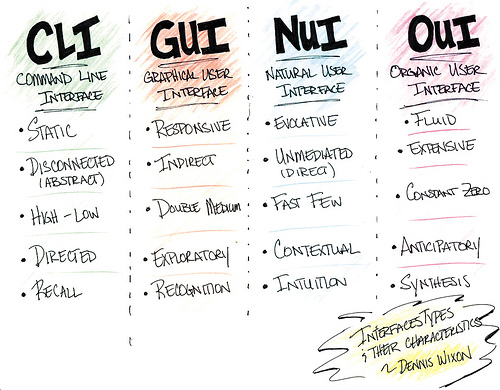 CLI
COMMAND LINE
INTERFACE
• STATIC
• DISCONNECTED
(ABSTRACT)
• HIGH-LOW
• DIRECTED
• RECALL
GUI
GRAPHICAL USER
INTERFACE
• RESPONSIVE
• INDIRECT
• DOUBLE MEDIUM
• EXPLORATORY
• RECOGNITION
NUI
NATURAL USER
INTERFACE
• EVOCATIVE
• UNMEDIATED
(DIRECT)
• FAST FEW
• CONTEXTUAL
• INTUITION
OUI
ORGANIC USER
INTERFACE
• FLUID
• EXTENSIVE
• CONSTANT ZERO
• ANTICIPATORY
• SYNTHESIS
INTERFACES TYPES
& THEIR CHARACTERISTICS
~ DENNIS WIXON